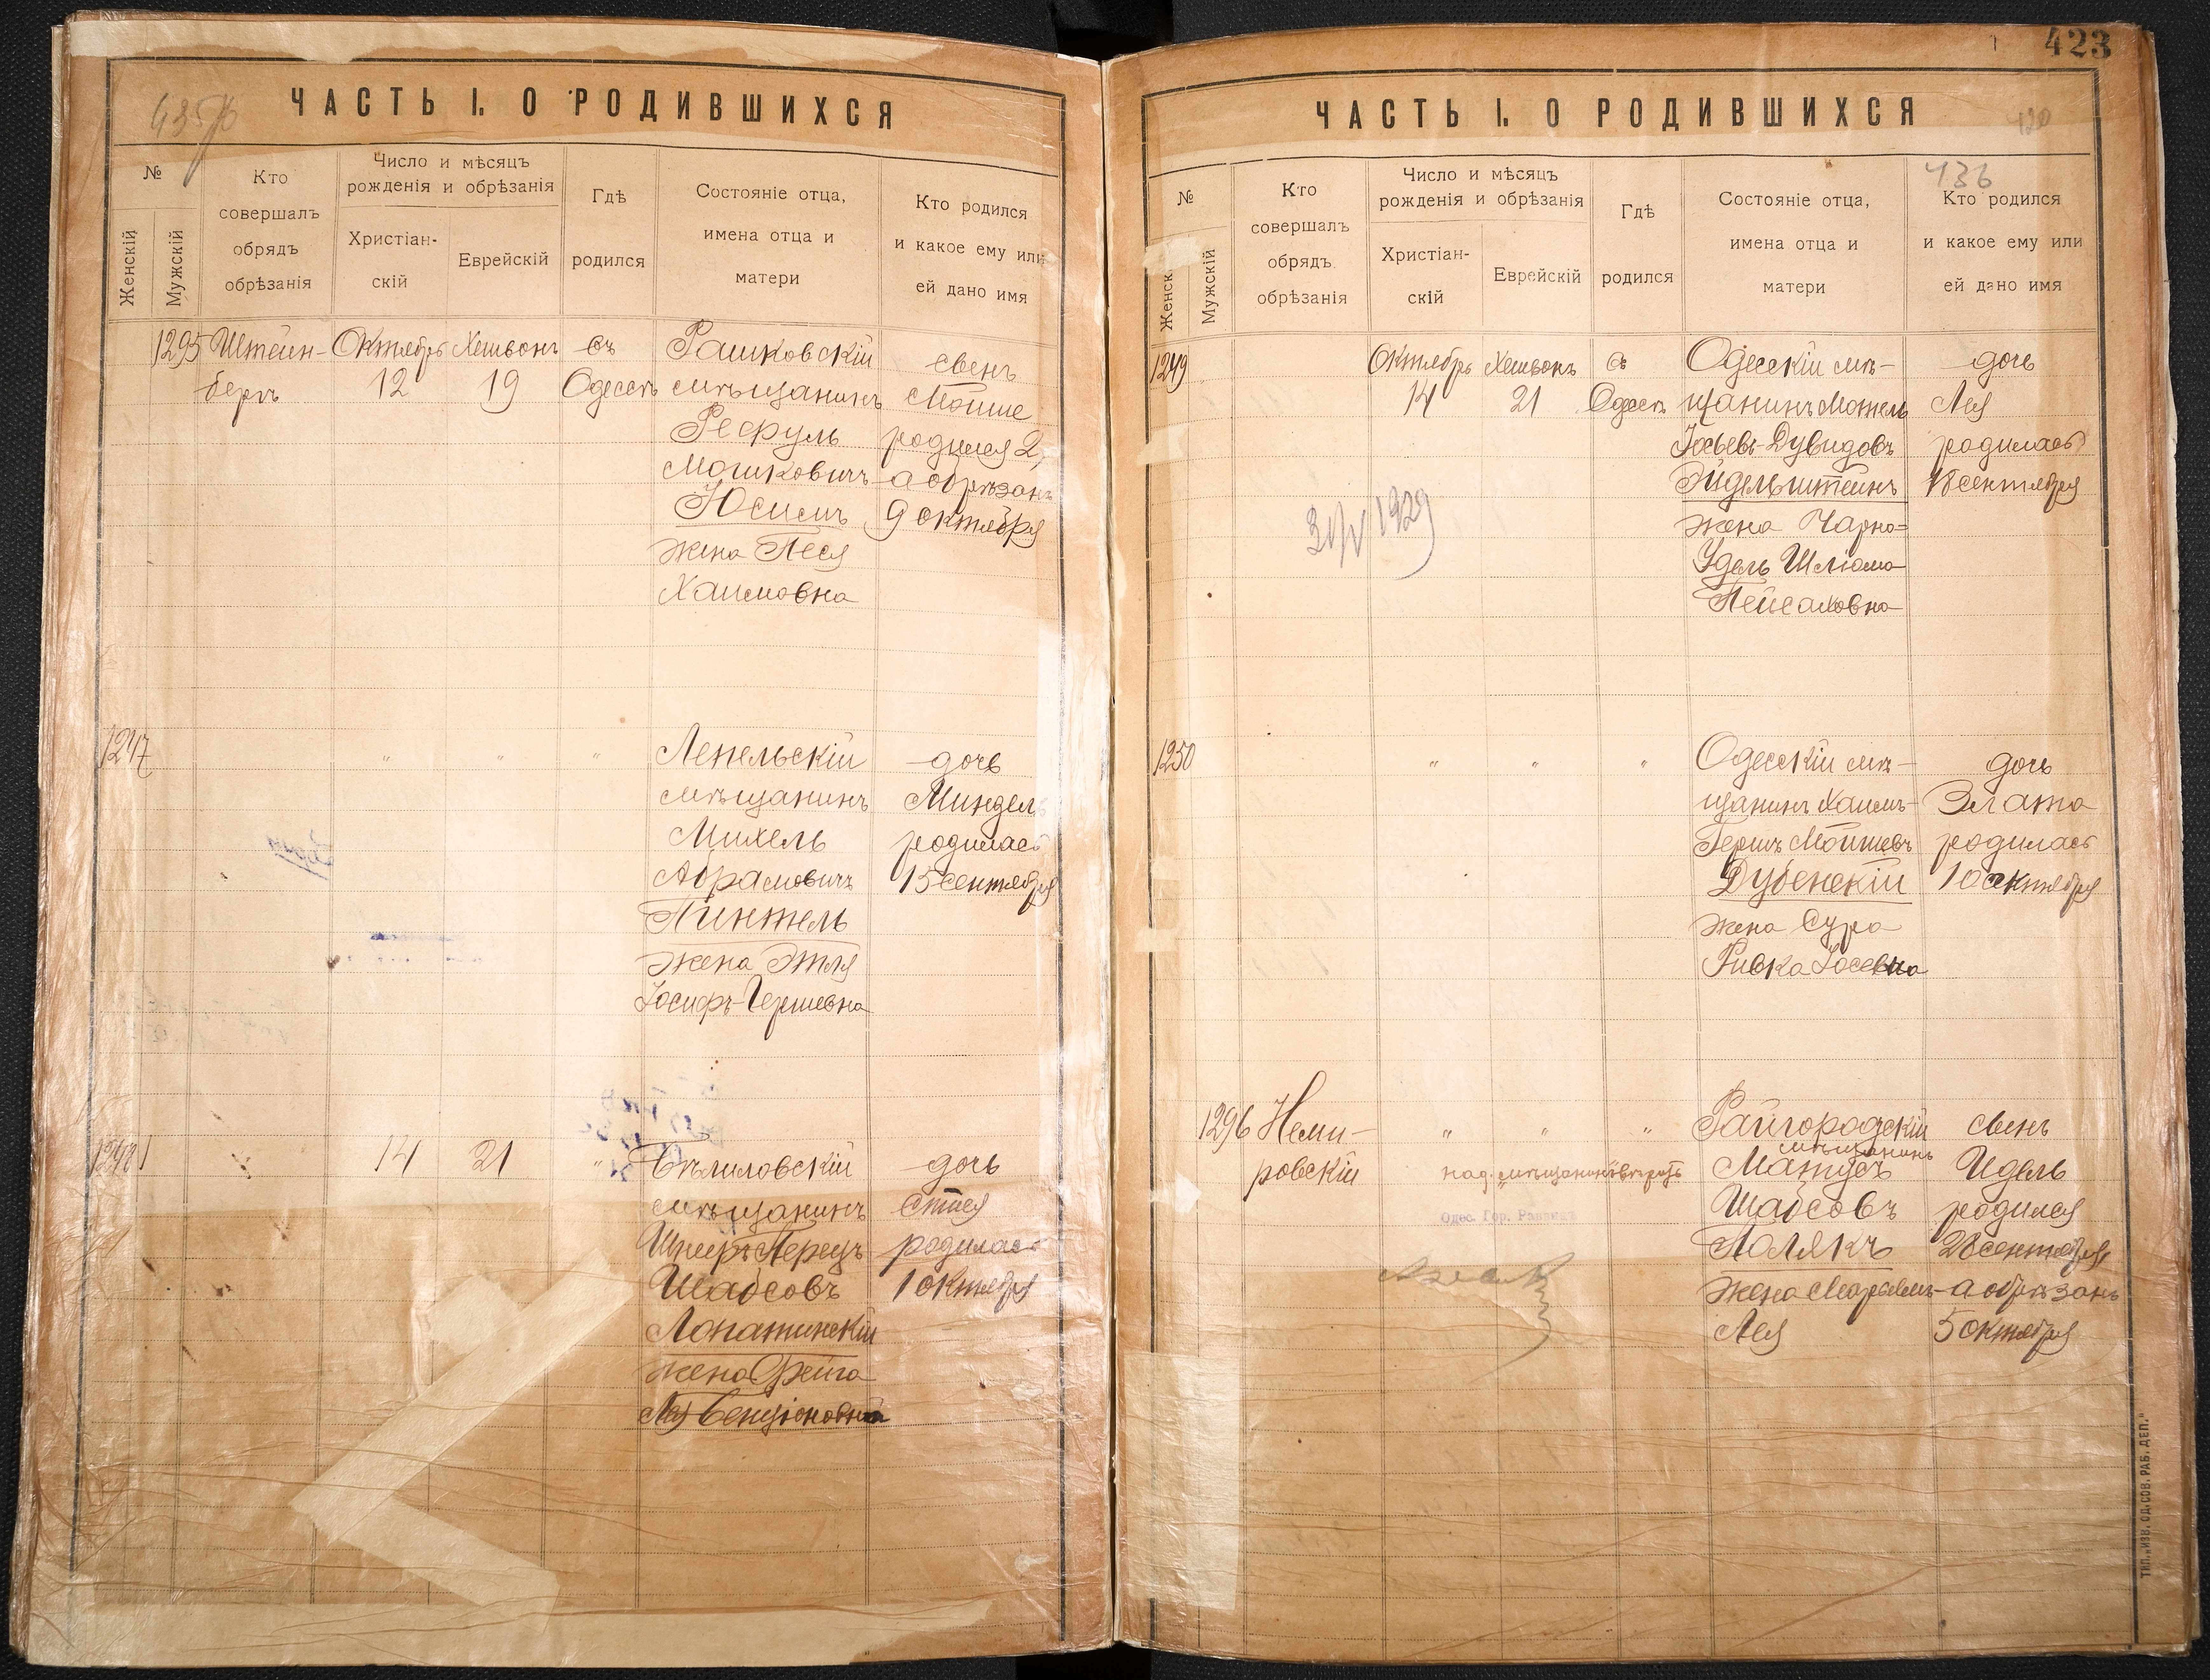 ЧАСТЬ I. О РОДИВШИХСЯ
№
Женскій
Мужскій
Кто
совершалъ
обрядъ
обрѣзанія
Число и мѣсяцъ
рожденія и обрѣзанія
Христіан-
скій
Еврейскій
Гдѣ
родился
Состояніе отца,
имена отца и
матери
Кто родился
и какое ему или
ей дано имя
1295 Штейн-
бергъ
Октябрь
12
Хешвонъ
19
въ
Одессѣ
Рашковскій
мѣщанинъ
Мошковичъ
Юсимъ
жена Песя
Хаимовна
свенъ
Мойше
родился 2,
а обрѣзанъ
9 октября
1247
"
"
"
Лепельскій
мѣщанинъ
Михель
Абрамовичъ
Пинтель
жена Этля
Іосифъ-Гершевна
дочь
Миндель
родилась
15 сентября
1248
14
21
"
Бѣлиловскій
мѣщанинъ
Перецъ
Шабсовъ
Лопатинскій
жена Фейга
Лея Бенціоновна
дочь
родилась
1 октября
423
ЧАСТЬ I. О РОДИВШИХСЯ
420
436
№
Женск
Мужскій
Кто
совершалъ
обрядъ
обрѣзанія
Число и мѣсяцъ
рожденія и обрѣзанія
Христіан-
скій
Еврейскій
Гдѣ
родился
Состояніе отца,
имена отца и
матери
Кто родился
и какое ему или
ей дано имя
1249
Октябрь
14
Хешвонъ
21
въ
Одессѣ
Одесскій мѣ-
щанинъ Мотель
Іосьевъ-Дувидовъ
Эйдельштейнъ
жена Чарна-
Удель Шліома
Пейсаховна
дочь
Лея
родилась
18 сентября
1929
1250
"
"
"
Одесскій мѣ-
щанинъ Хаимъ-
Гершъ Мойшевъ
Дубенскій
жена Сура
Ривка Іосевна
дочь
Злата
родилась
10 октября
1296 Неми-
ровскій
"
"
"
Райгородскій
мѣщанинъ
Матусъ
Шабсовъ
Полякъ
жена Марьямъ-
Лея
свенъ
Идель
родился
28 сентября
а обрѣзанъ
5 октября
Одес. Гор.
ТИП. „ИЗВ. ОД. СОВ. РАБ. ДЕП."